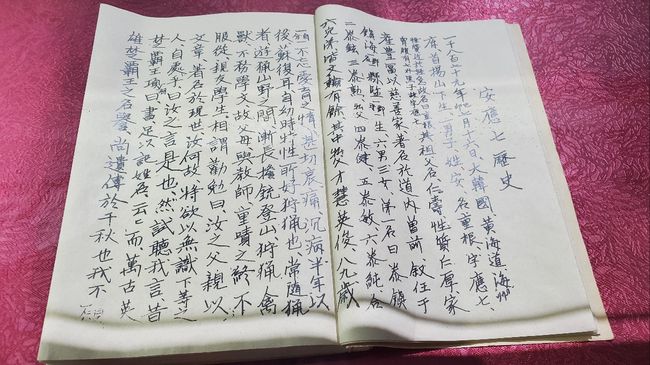 安應七歷史
一千八百七十九年 七月十六日、大韓國、黃海道海州
府首陽山下生一男子、姓安、名重根、字應七、
其祖父名仁壽性質仁厚家
產豊富以慈善家著名於道內曾前、敘任于
鎮海郡縣監、生六男三女、第一名曰泰鎮
二泰鉉、三泰勳父四泰健、五泰敏、六泰純、合
六兄弟皆文翰有餘其中 父才慧英俊、八九歲
不忘愛育之情甚切哀痛沉病半年以
後蘇復耳自幼時特性所好狩獵也、常隨獵
者遊獵山野之間漸長擔銃登山狩獵禽
獸不務學文故父母與教師重責之終不
服從親友學生相謂勸勉曰汝之父親以
文章、著名於現世汝何故將欲以無識下等之
人自處乎曰汝之言是也、然試聽我言昔
楚霸王項羽曰、書足以記姓名、云云而萬古英
雄楚霸王之名譽、尚遺傳於千秋也我不